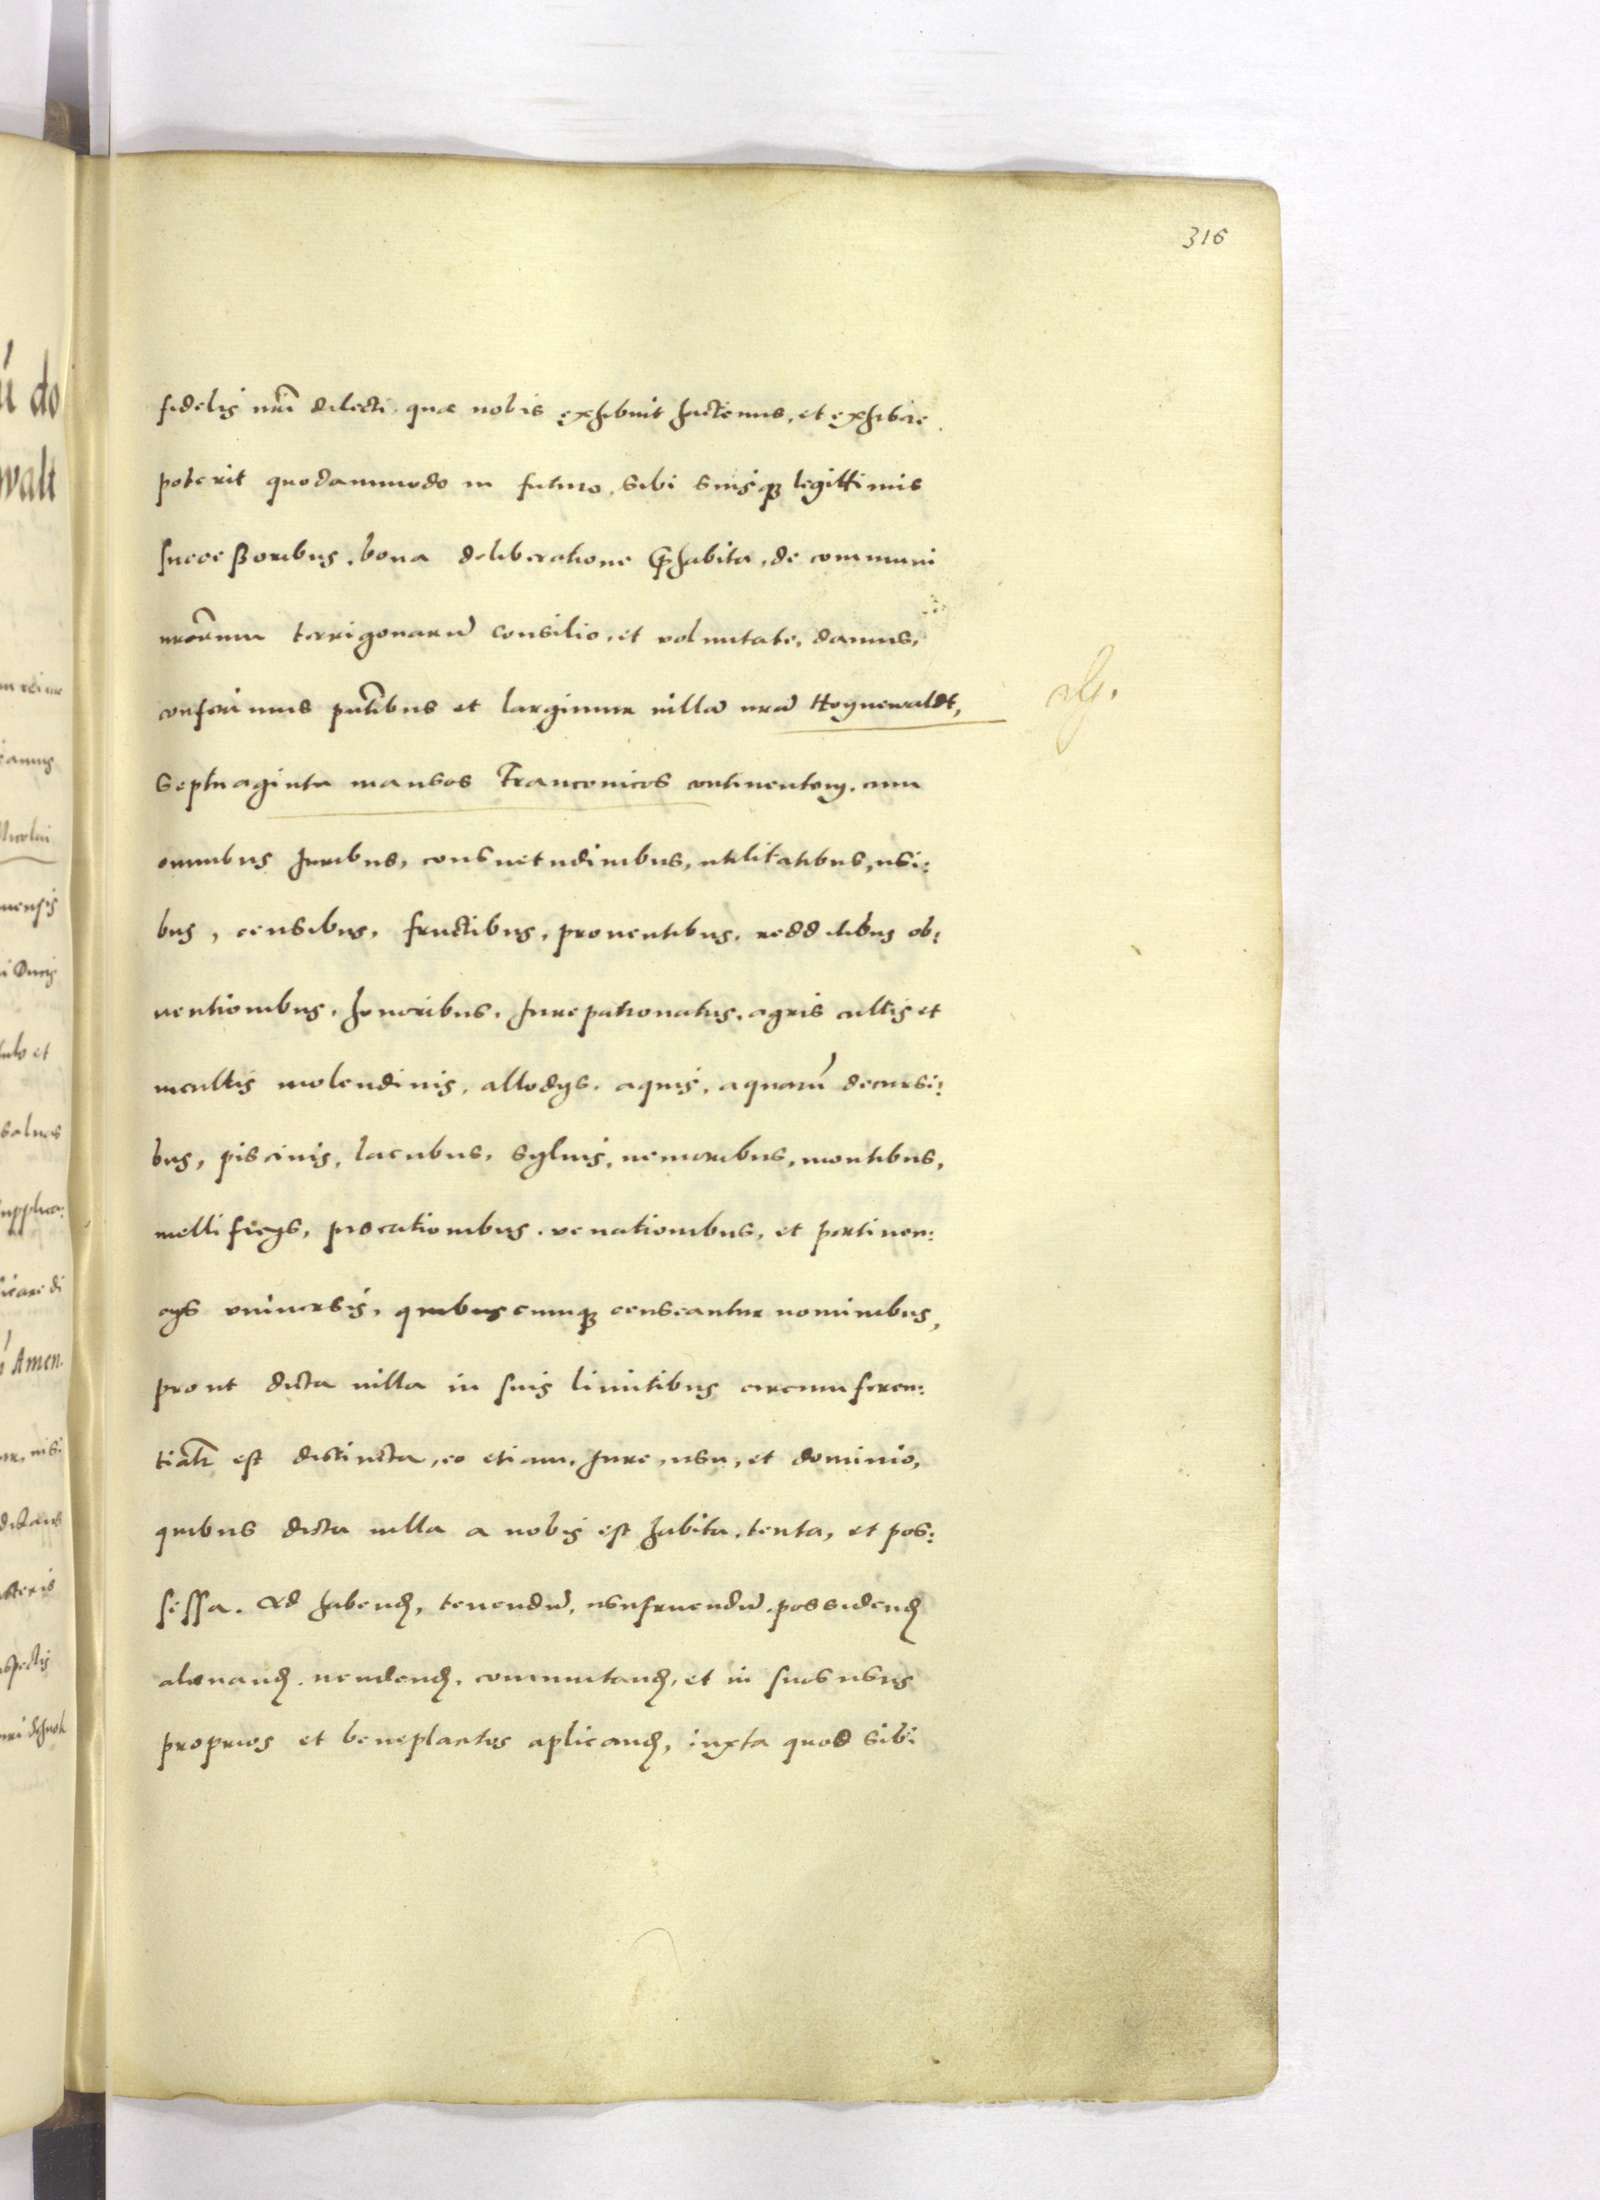 316
fidelis nr̃i dilecti, quæ nobis exhibuit hactenus, et exhibere
poterit quodammodo in futuro, sibi suisq; legittimis
succeßoribus, bona deliberatione p̃habita, de communi
nrõrum terrigenarū consilio, et voluntate, damus,
conferimus pñtibus et largimur villā nrā Hoynewaldt,
Septuaginta mansos Franconicos continentem, cum
omnibus Juribus, consuetudinibus, utilitatibus, usi:
bus, censibus, fructibus, prouentibus, redditibus ob:
uentionibus, honoribus, Jurepatronatus, agris cultis et
incultis molendinis, allodijs, aquis, aquarū decursi:
bus, piscinis, lacubus, syluis, nemoribus, montibus,
mellificijs, piscationibus, venationibus, et pertinen:
cijs vniuersis, quibuscumq; censeantur nominibus,
prout dicta villa in suis limitibus circumferen:
tialr̃ est distincta, eo etiam, Jure, usu, et dominio,
quibus dicta villa a nobis est habita, tenta, et pos:
sessa. Ad habend, tenendū, usufruendū, possidend
alienand, uendend, commutand, et in suos usus
proprios et beneplacitos aplicand, iuxta quod sibi